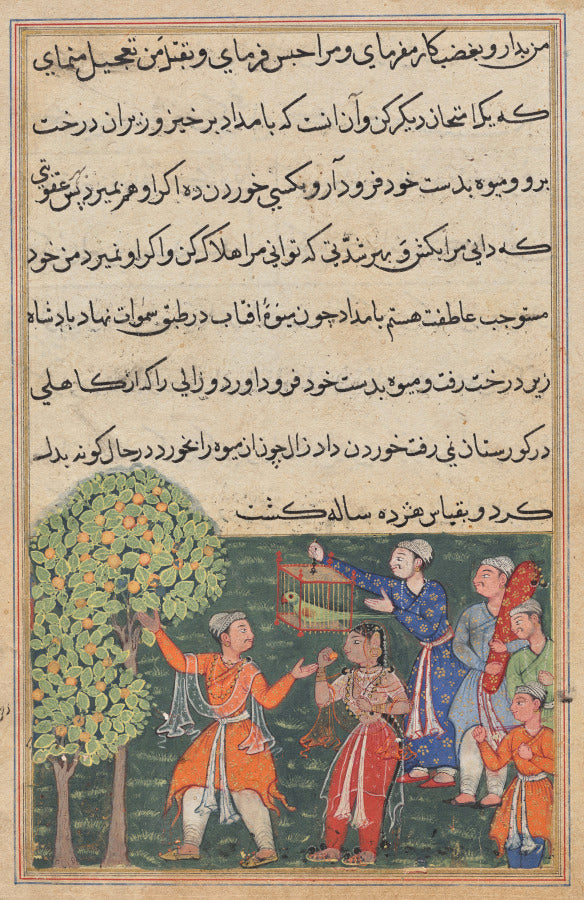 مزبدار و بغضب کار مفرمای و مرا حبس فرمای و بقتل من تعجیل منمای
که یک امتحان دیگر کن و آن انست که بامداد برخیز و زیر ان درخت
برو و میوه بدست خود فرود آر و بکسی خوردن ده اکر او هم بمیرد پس عقوبتی
که دانی مرا بکش و بهر شدتی که توانی مرا هلاک کن و اکر او نمیرد من خود
مستوجب عاطفت هستم بامداد چون میوۀ افتاب در طبق سموات نهاد بادشاه
زیر درخت رفت و میوه بدست خود فرود اورد و زالی را که از کاهلی
در کورستان نمی رفت خوردن داد زال چون ان میوه را بخورد در حال کونه بدل
کرد و بقیاس هژده ساله کشت